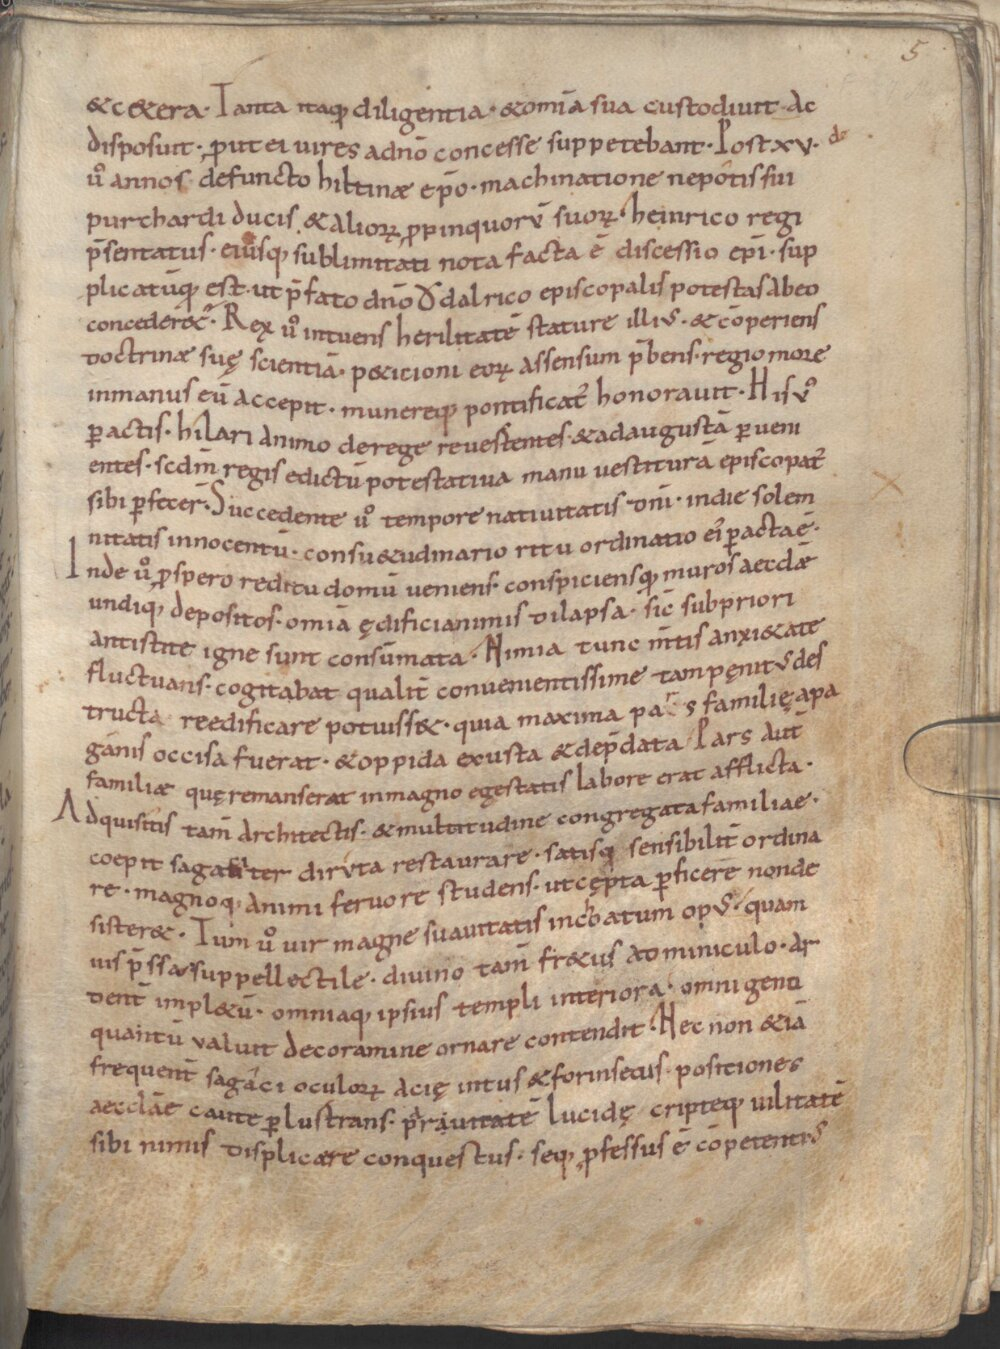 5
&c&era · Tanta itaq; diligentia · &om̄ia sua custodiuit · Ac
disposuit · ꝓut ei uires adn̄o concesse suppetebant · Post xv · de
ů annos · defuncto hiltinæ ep̄o · machinatione nepotis sui
purchardi ducis & alioꝝ ꝓpinquorū suoꝝ · heinrico regi
p̄sentatus · eiusq; sublimitati nota facta ē discessio ep̄i · sup
plicatūq; est · ut p̄fato dn̄o Ŏdalrico episcopalis potestas Abeo
conceder&ur · Rex ů intuens herilitatē stature illius · & cōperiens
doctrinæ suę scientiā · p&icioni eoꝝ assensum p̄bens · regio more
inmanus eū accepit · munereq; pontificat᷒ honorauit · His ů
ꝑactis · hilari animo derege reuertentes · &adaugustā ꝑueni
entes · scdm̄ regis edictū potestatiua manu uestiturā episcopat᷒
sibi ꝑfecer̄ · Succedente ů tempore natiuitatis dn̄i · indie solem
nitatis innocentū · consu&udinario ritu ordinatio ei᷒ ꝑacta ē ·
Inde ů ꝓspero reditu domū ueniens · conspiciensq; muros aeccłæ
undiq; depositos · om̄ia ędificia nimis dilapsa · sic̄ sub priori
antistite igne sunt consūmata · Nimia tunc m̄tis anxi&ate
fluctuans · cogitabat qualit̄ conuenientissime tam pęnitus des
tructa reedificare potuiss& · quia maxima pars familię apa
ganis occisa fuerat · &oppida exusta &dep̄data Pars aut̄
familiæ quę remanserat inmagno egestatis labore erat afflicta ·
Adquisitis tam̄ architectis · &multitudine congregata familiae ·
coepit sagaciter diruta restaurare · satisq; sensibilit̄ ordina
re · magnoq; animi feruore studens · ut cępta ꝑficere nonde
sister& · Tum ů uir magne suauitatis incoatum opus · quam
uis p̄ssa suppellectile · diuino tam̄ fr&us adminiculo · ar
dent̄ impl&ū · omniaq; ipsius templi interiora · omnigeno
quantū ualuit decoramine ornare contendit · Nec non &iā
frequent̄ sagaci oculoꝝ acię intus &forinsecus · positiones
aeccłae caute ꝑlustrans · prauitatē lucidę cripteq; uilitatē
sibi nimis displicere conquestus · seq; ꝓfessus ē cōpetentius